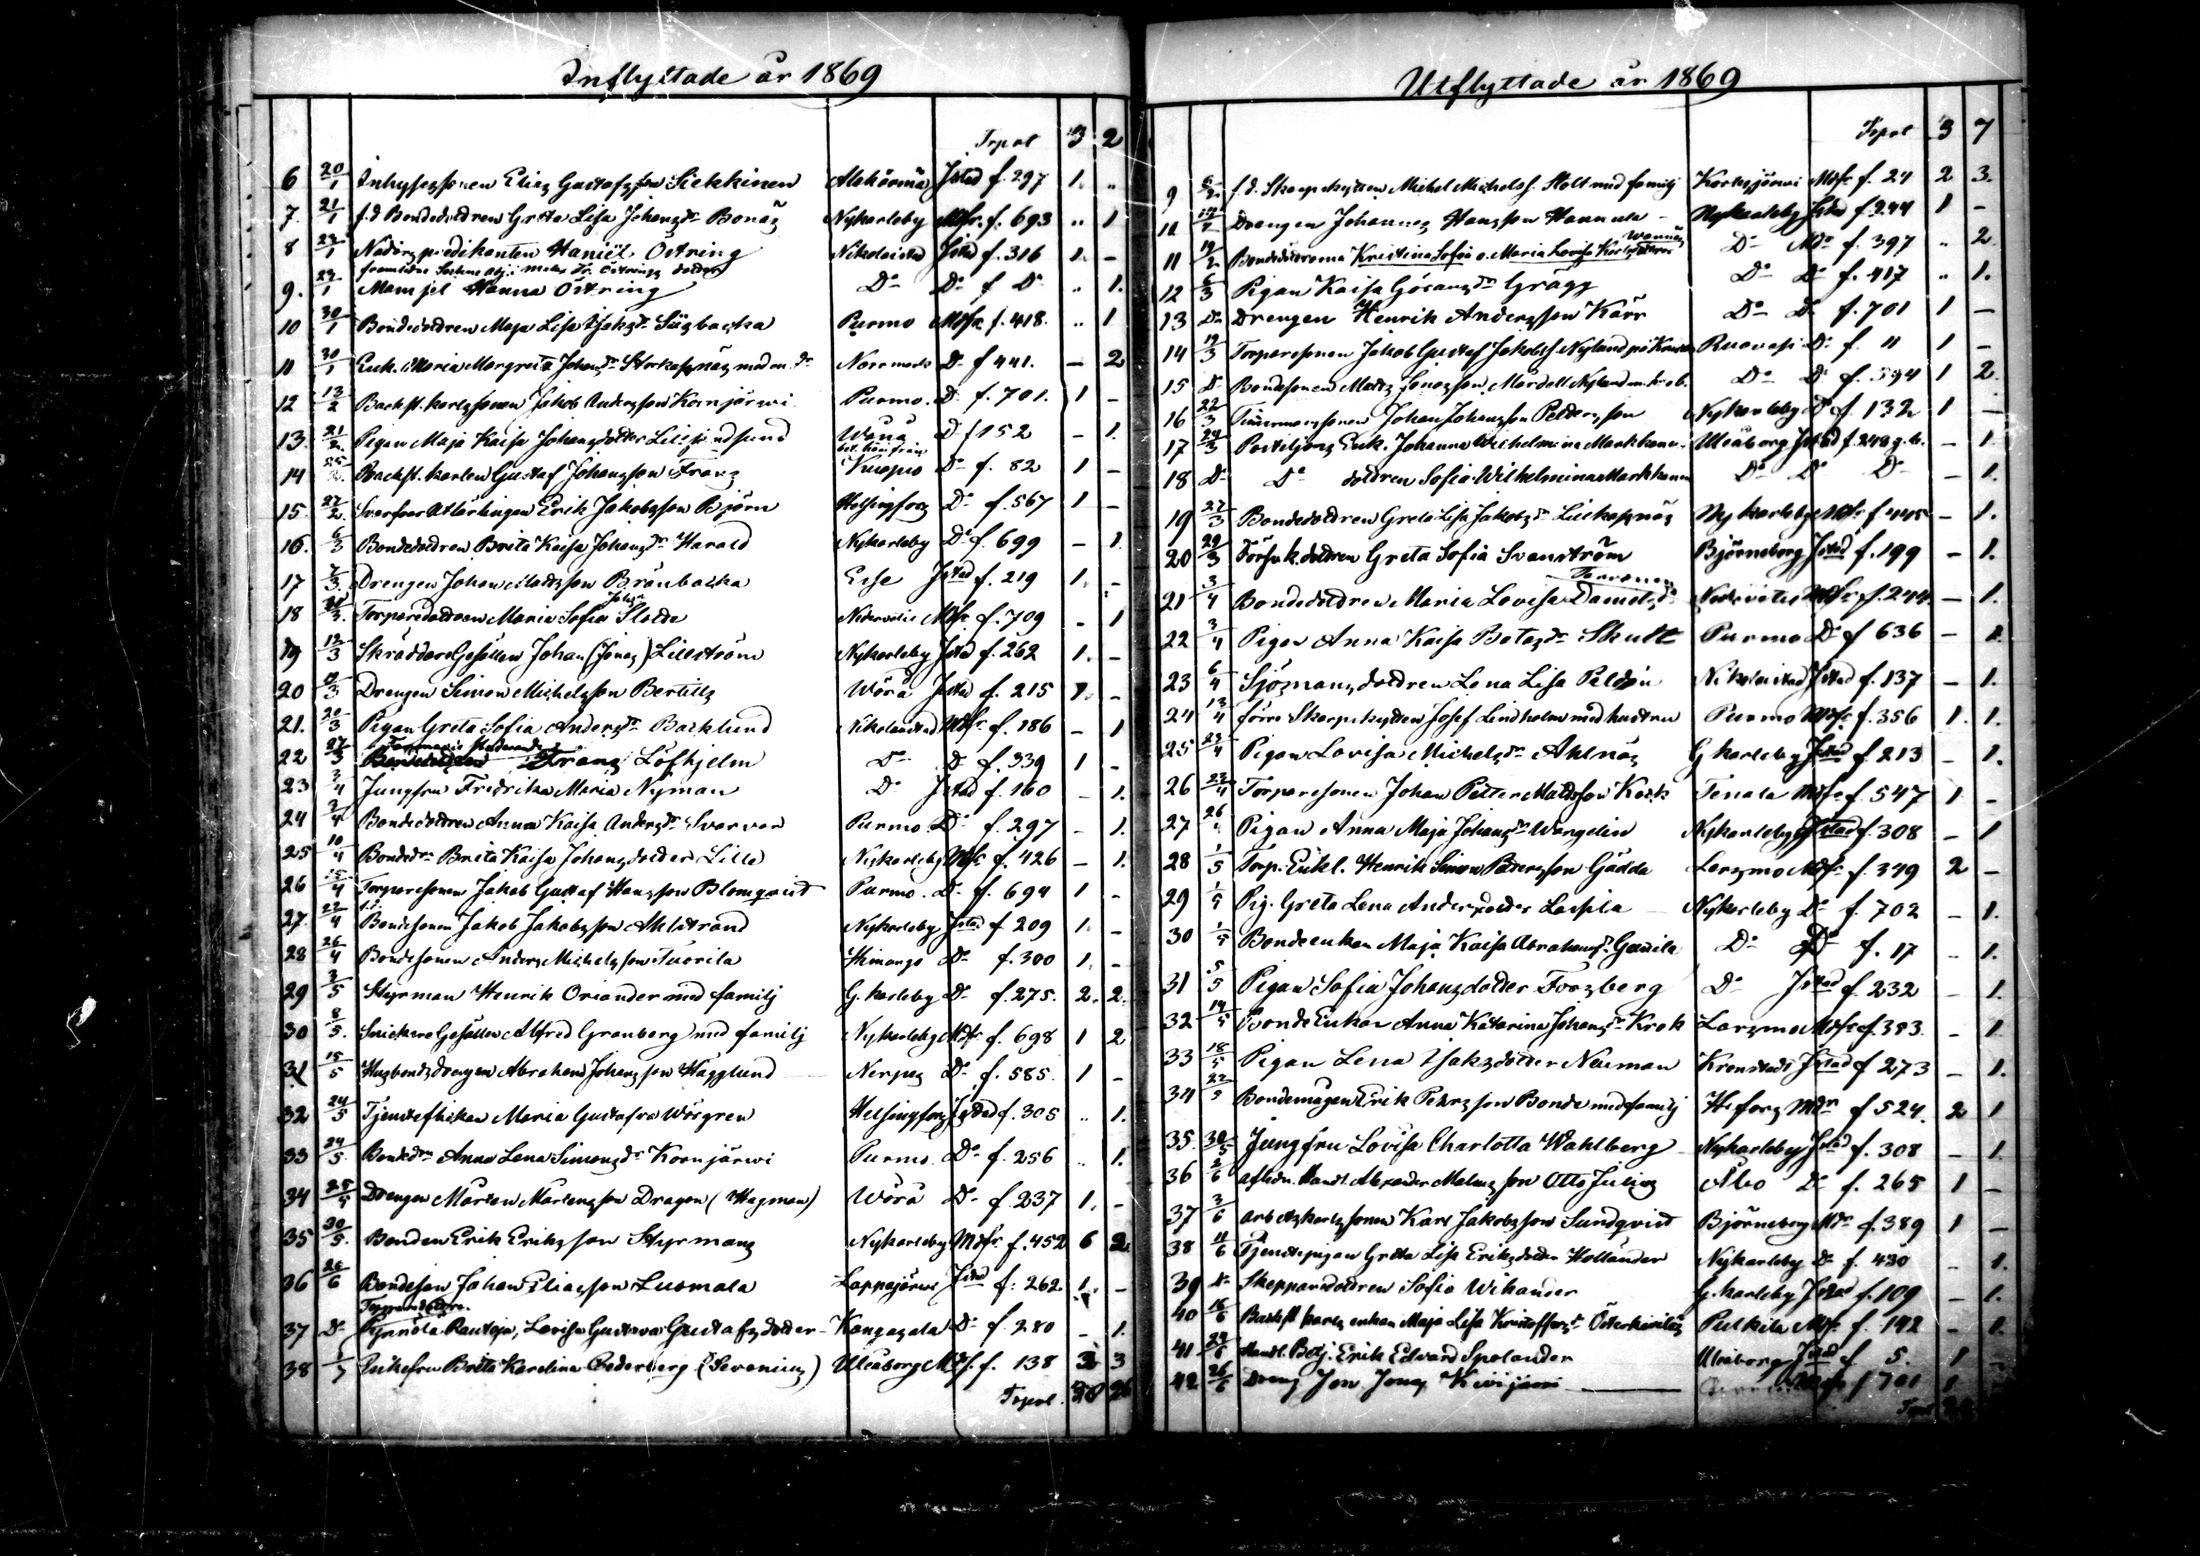 Inflyttade år 1869
Trpol 13 2
6 20/1 Inhysessonen Elias Gustafsson Siekkinen Alahärmä Jstad f. 297 1. "
7. 21/1 f.d Bondedottren Greta Lisa Johansdr Bonäs Nykarleby Mdfr. f. 693 " 1
8 23/1 Nödårspredikanten Daniël Östring Nikolaistad Jstad f. 316 1. -
9. 23/1 Mamsel Hanna Östring Do Do f Do " 1.
10 30/1 Bondedottren Maja Lisa Isaksdr Sisbacka Purmo Mdfr. f. 418. " 1
11 30/1 Enk. Maria Margreta Johansdr Storkaspnäs med en dr Norrmark Do f 441. - 2
12 13/2 Backst.karlssonen Jakob Andersson Kornjärwi Purmo. Do f. 701. 1 -
13. 21/2 Pigan Maja Kaisa Johansdotter Liljendsund Wörå D f 152 - 1.
14 Backst.karlen Gustaf Johansson Franz Kuopio Do f. 82 1 -
15 27/2 Swarfvar Atterlingen Erik Jakobsson Björn Helsingfors Do f. 567 1 -
16. 6/3 Bondedottren Brita Kaisa Johansdr Harald Nykarleby Do f. 699 - 1.
17 7/3 Drengen Johan Mattsson Brännbacka Esse Jstad f. 219 1. -
18 Torparedottren Maria Sofia Slotte Nedervetil Mdfr f. 709 - 1
19 13/3 SkräddareGesällen Johan (Jonas) Lillström Nykarleby Jstad f. 262 1. -
20 Drengen Simon Michelsson Bertills Wörå Jstad f. 215 1. -
21. 20/3 Pigan Greta Sofia Andersdr Backlund Nikolaistad Mdfr f. 186 - 1
22 27/3 Franz Löfhjelm Do D f. 339 1 -
23 2/4 Jungfru Fredrika Maria Nyman Do Jstad f. 160 - 1.
24 2/4 Bondedottren Anna Kaisa Andersdr Svarvar Purmo Do f. 297 - 1.
25 10/4 Bondedr Brita Kaisa Johansdotter Lille Nykarleby Mdfr f. 426 - 1.
26 15/4 Torparesonen Jakob Gustaf Hansson Blomqvist Purmo. D. f. 694 1 -
27. 22/4 Bondesonen Jakob Jakobsson Ahlstrand Nykarleby Jstad f 209 1. -
28 26/4 Bondesonen Anders Michelsson Tuorila Himango Do f. 300 1. -
29 3/5 Styrman Henrik Oriander med familj G. karleby Do f. 275. 2. 2.
30 8/5. SnickareGesällen Alfred Granberg med familj Nykarleby Mdfr f. 698 1 2
31 15/5 Husbondsdrengen Abraham Johansson Hägglund Nerpes Do f. 585. 1 -
32 24/5 Tjensteflickan Maria Gustafva Wörgren Helsingfors Jstad f. 305 " 1.
33 24/5. Bondedr Anna Lena Simonsdr Kornjärwi Purmo. Do f. 256 " 1.
34 25/5 Drengen Mårten Mårtensson Dragon (Hagman) Wörå Do f. 237 1. -
35 30/5. Bonden Erik Eriksson Styrmans Nykarleby Mdfr f. 452 6 2.
36 26/6 Bondeson Johan Eliasson Luomala Lappajärwi Jstad f. 262 1. -
Torparedottren.
37 Do Rautoja, Lovisa Gustava Gustafsdotter Kangasala Do f. 280 - 1.
38 1/7 Enkefru Brita Karolina Cederberg (Sevonius) Uleåborg Mdf. f. 138 3 3
Trpol. 38 26
Utflyttade år 1869
Trpol 3 7
9 6/2 f.d. Skarpskytten Michel Michelss. Stolt med familj Kortesjärwi Mdfr f. 24 2 3.
10 Drengen Johannes Hansson Hannula - Nykarleby Jstad f. 244 1 -
Wannäs
11 19/2 Bondedöttrarna Kristina Sofia o. Maria Lovisa Karlsdöttrar Do Mdr f. 397 " 2
12 6/3 Pigan Kaisa Göransdr Grägg Do Do f. 417 " 1.
13 Do Drengen Henrik Andersson Kärr Do D. f. 701 1 -
14 19/3 Torparesonen Jakob Gustaf Jakobss. Nyland på Ruovesi Do f. 11 1 -
15 Do Bondesonen Matts Jonasson Mardell Nyland m. h. o b. Do Do f. 594 1 2.
16 22/3 Timmermanssonen Johan Johansson Pettersson Nykarleby Do f. 132 1 -
17 24/3 Postiljons Enk. Johanna Wilhelmina Markkanen Uleåborg Jstad f. 248 g. b. - 1.
18 Do Do dottren Sofia Wilhelmina Markkanen Do Do Do - 1.
19 27/3 Bondedottren Greta Lisa Jakobsdr Lillkaspnäs Nykarleby Mdfr f 445 - 1.
20 29/3 Förf.k.dottren Greta Sofia Svanström Björneborg Jstad f. 199 - 1.
21 3/4 Bondedottren Maria Lovisa Danielsdr Nedervetil Mdfr f. 244. - 1.
22 3/4 Pigan Anna Kaisa Matsdr Skult Purmo Do f 636 - 1.
23 6/4 Sjömansdottren Lena Lisa Peldän Nikolaistad Jstad f. 137 - 1.
24 13/4 förre Skarpskytten Josef Lindholm med hustru Purmo Mdfr f. 356 1. 1.
25 23/4 Pigan Lovisa Michelsdr Ahlnäs G karleby Jstad f 213 - 1.
26 23/4 Torparesonen Johan Petter Mattsson Kock Tenala Mdfr f. 547 1 -
27 26 Pigan Anna Maja Johansdr Wargelin Nykarleby Jstad f. 308 - 1
28 1/5 Torp. Enkl. Henrik Simon Pettersson Gädda Larsmo Mdfr f. 349 2 -
29 1/5 Pig. Greta Lena Andersdotter Laspila Nykarleby Do f. 702 - 1.
30 1/5 Bondeenkan Maja Kaisa Abrahamsdr Gunila Do Do f. 17 - 1.
31 5/5 Pigan Sofia Johansdotter Forsberg Do Jstad f 232 - 1.
32 14/5 BondeEnkan Anna Katarina Johansdr Krok Larsmo Mdfr f. 353. - 1.
33 18/5 Pigan Lena Isaksdotter Neuman Kronstadt Jstad f 273 - 1.
34 22/5 Bondemågen Erik Pehrsson Bonde med familj H:fors Mdr f 524. 2 1
35. 30/5 Jungfru Lovisa Charlotta Wahlberg Nykarleby Jstad f. 308 - 1.
36 2/6 afledn. Handl. Alexander Malmssson Otto Julius Åbo Do f. 265 1 -
37 3/6 Arbetskarlssonen Karl Jakobsson Sundqvist Björneborg Mdr f. 389 1 -
38 11/6 Tjenstepigan Greta Lisa Eriksdotter Holländer Nykarleby Do f. 430 - 1.
39 Do Skepparedottren Sofia Wikander G. karleby Jstad f. 109 - 1.
40 16/6 Backst.karlsenkan Maja Lisa Kristoffersdr Pulkila Mdfr f. 142 - 1.
41. 24/6 Handl. Betj. Erik Edvard Spolander Uleåborg Jstad f 5. 1 -
42 26/6 Dreng Jon Jonas Kivijärvi f 701 1
Trpol